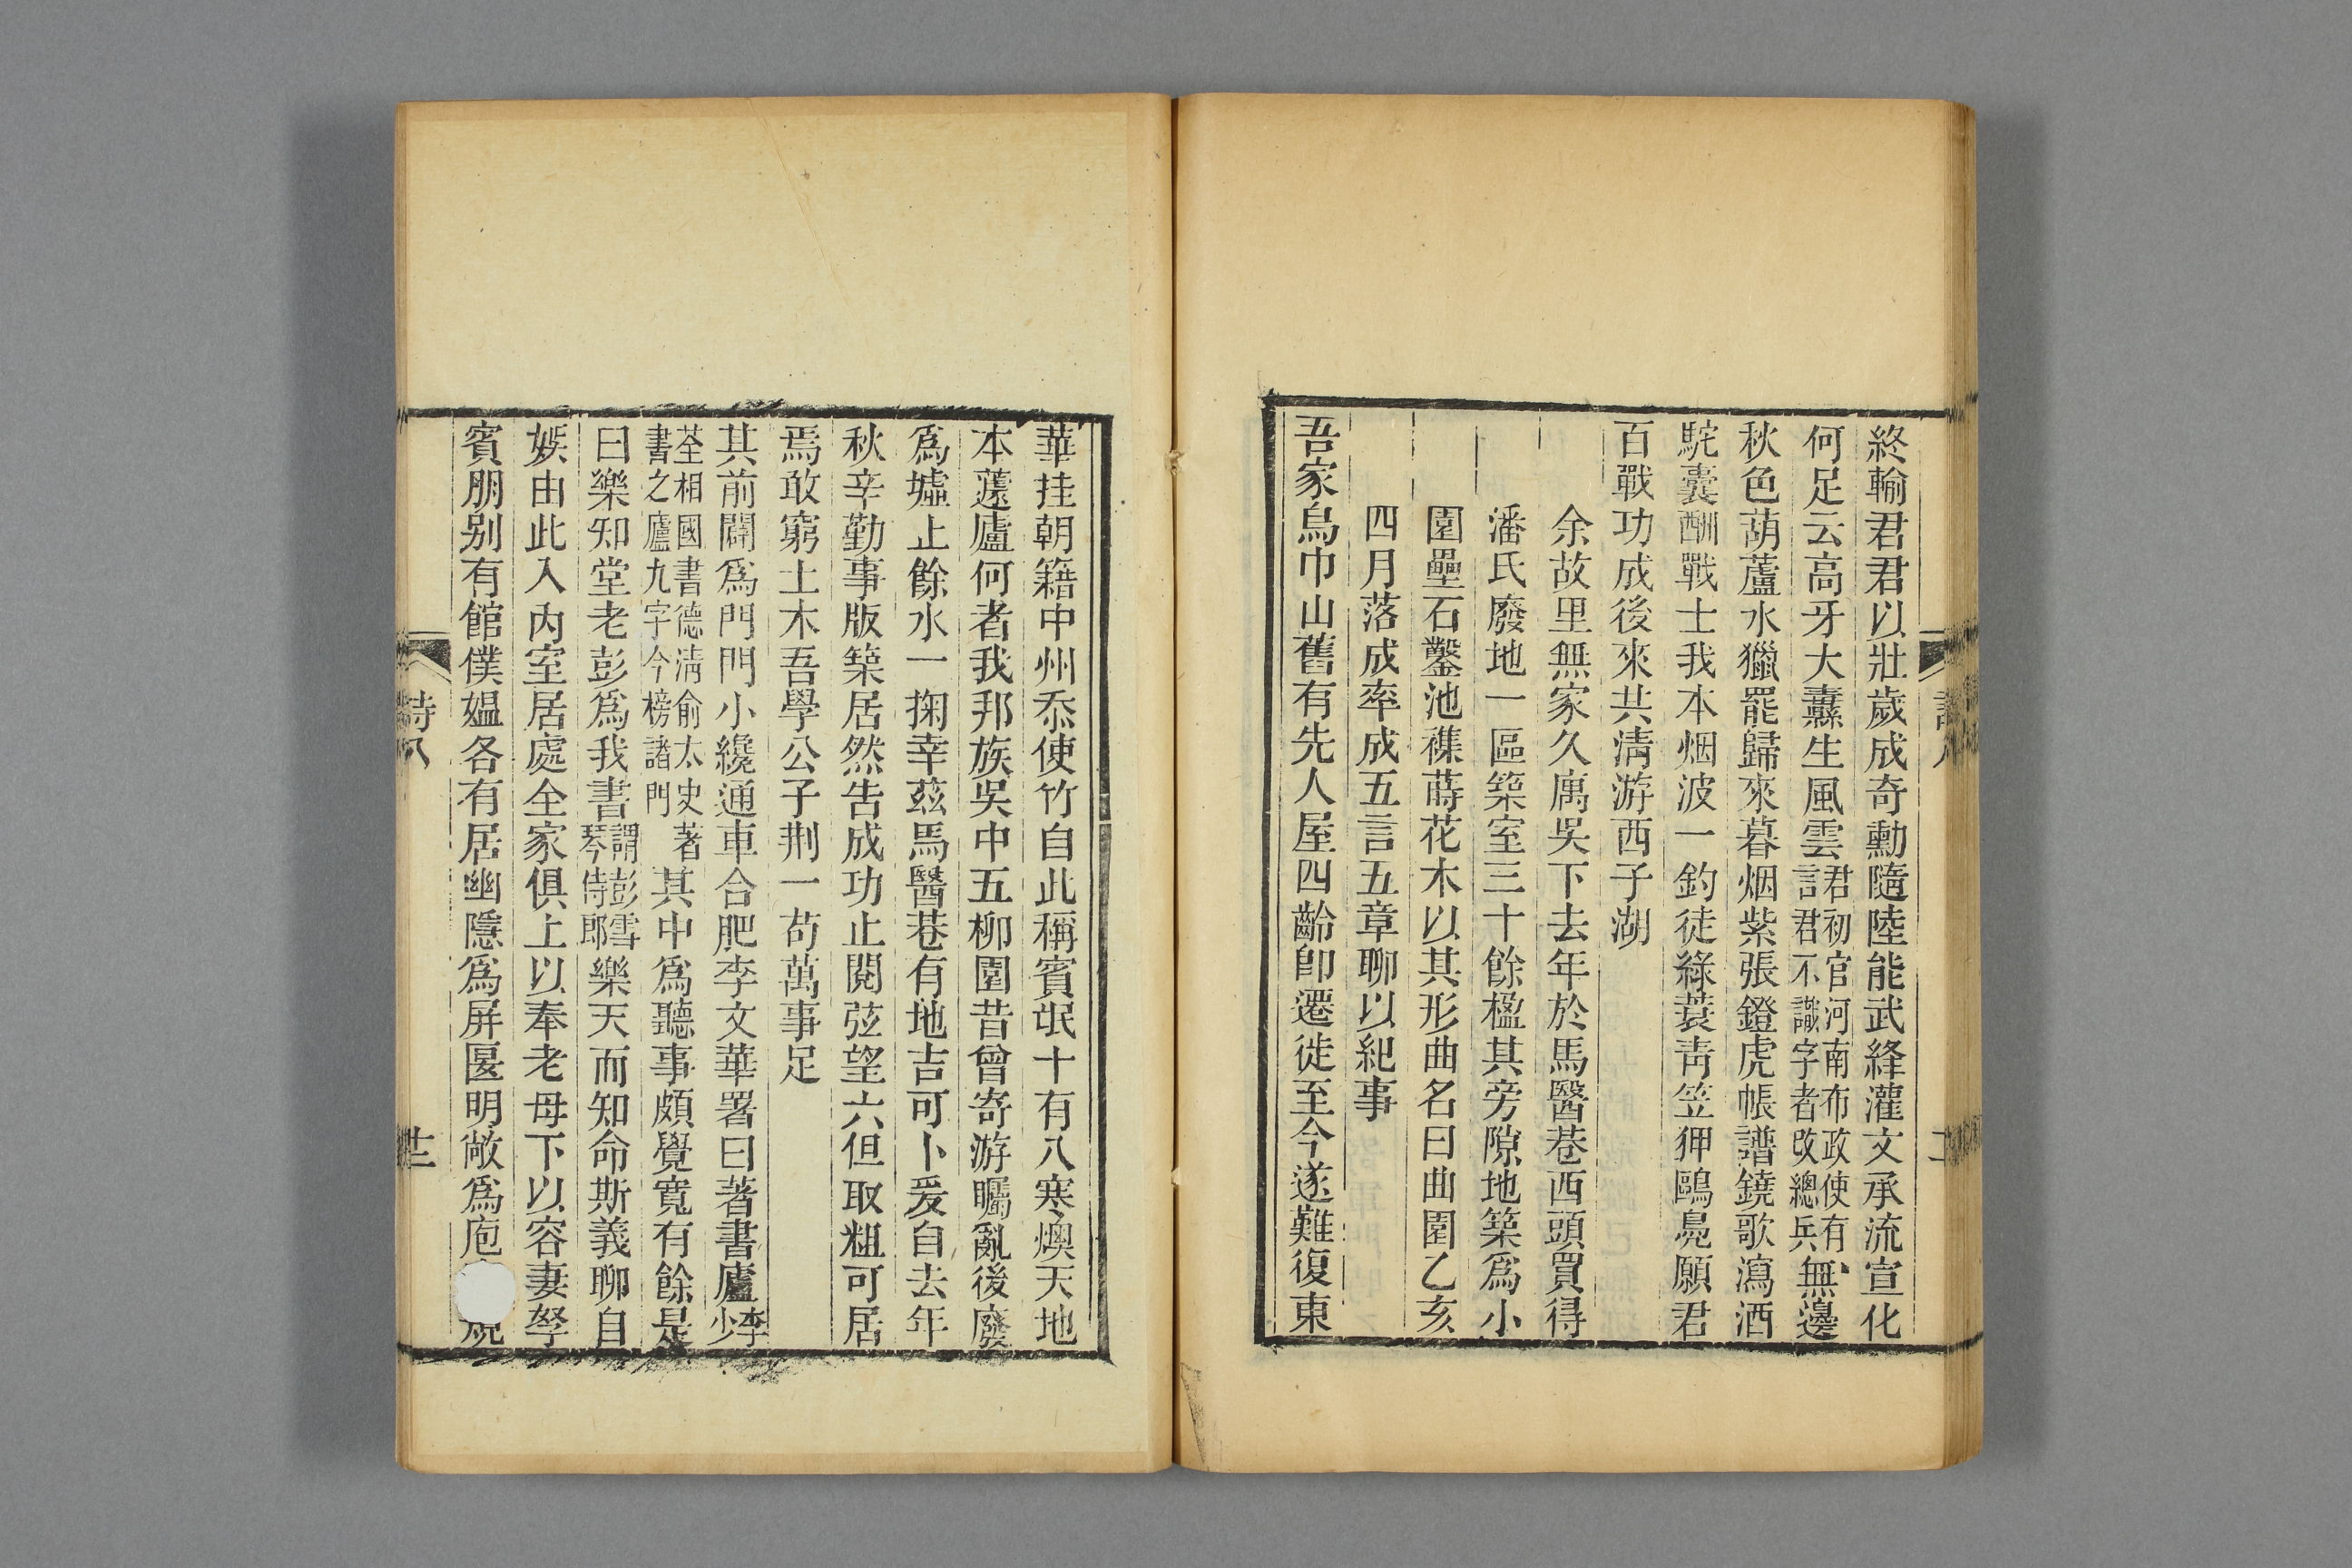 終輸君君以壯歲成奇勳隨陸能武絳灌文承流宣化
何足云高牙大纛生風雲君初官河南布政使有言君不識字者改總兵無邊
秋色葫蘆水獵罷歸來暮烟紫張鐙虎帳譜鐃歌瀉酒
駝囊酬戰士我本烟波一釣徒綠蓑靑笠狎鷗鳧願君
百戰功成後來共淸游西子湖
余故里無家久寓吳下去年於馬醫巷西頭買得
潘氏廢地一區築室三十餘楹其旁隙地築爲小
園壘石鑿池襍蒔花木以其形曲名曰曲園乙亥
四月落成率成五言五章聊以紀事
吾家烏巾山舊有先人屋四齡卽遷徙至今遂難復東
詩八
華挂朝籍中州忝使竹自此稱賓氓十有八寒燠天地
本蘧廬何者我邦族吳中五柳園昔曾寄游矚亂後廢
爲墟止餘水一掬幸茲馬醫巷有地吉可卜爰自去年
秋辛勤事版築居然告成功止閱弦望六但取粗可居
焉敢窮土木吾學公子荆一苟萬事足
其前闢爲門門小纔通車合肥李文華署曰著書廬李少
荃相國書德淸俞太史著書之廬九字今榜諸門其中爲聽事頗覺寬有餘是
曰樂知堂老彭爲我書謂彭雪琴侍郎樂天而知命斯義聊自
娛由此入內室居處全家俱上以奉老母下以容妻孥
賓朋別有館僕媼各有居幽隱爲屏匽明敞爲庖
詩八
廿二